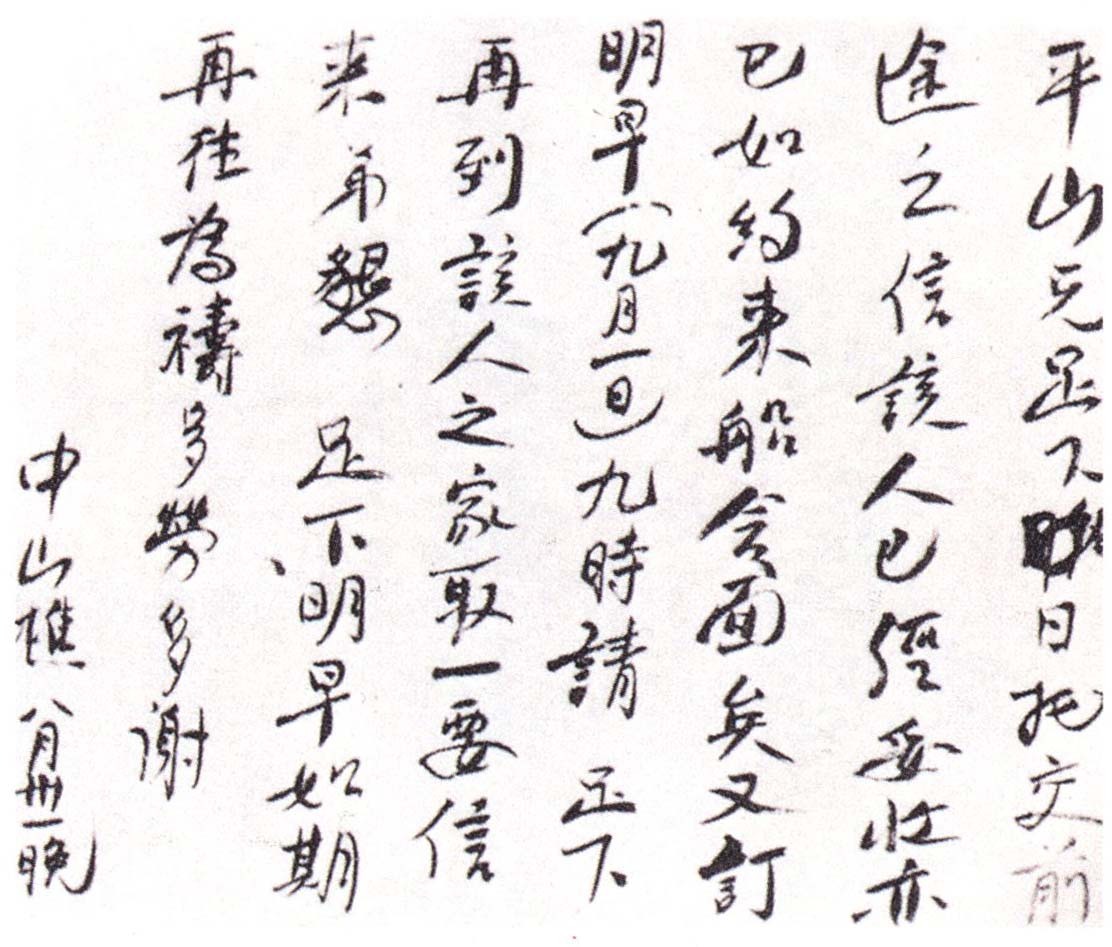 平山兄足下昨日托交前
途之信該人已經妥收亦
已如約来船会面矣又訂
明早(九月一日)九時請 足下
再到該人之家取一要信
来弟懇 足下明早如期
再往為禱多勞多謝
中山樵 八月卅一晚